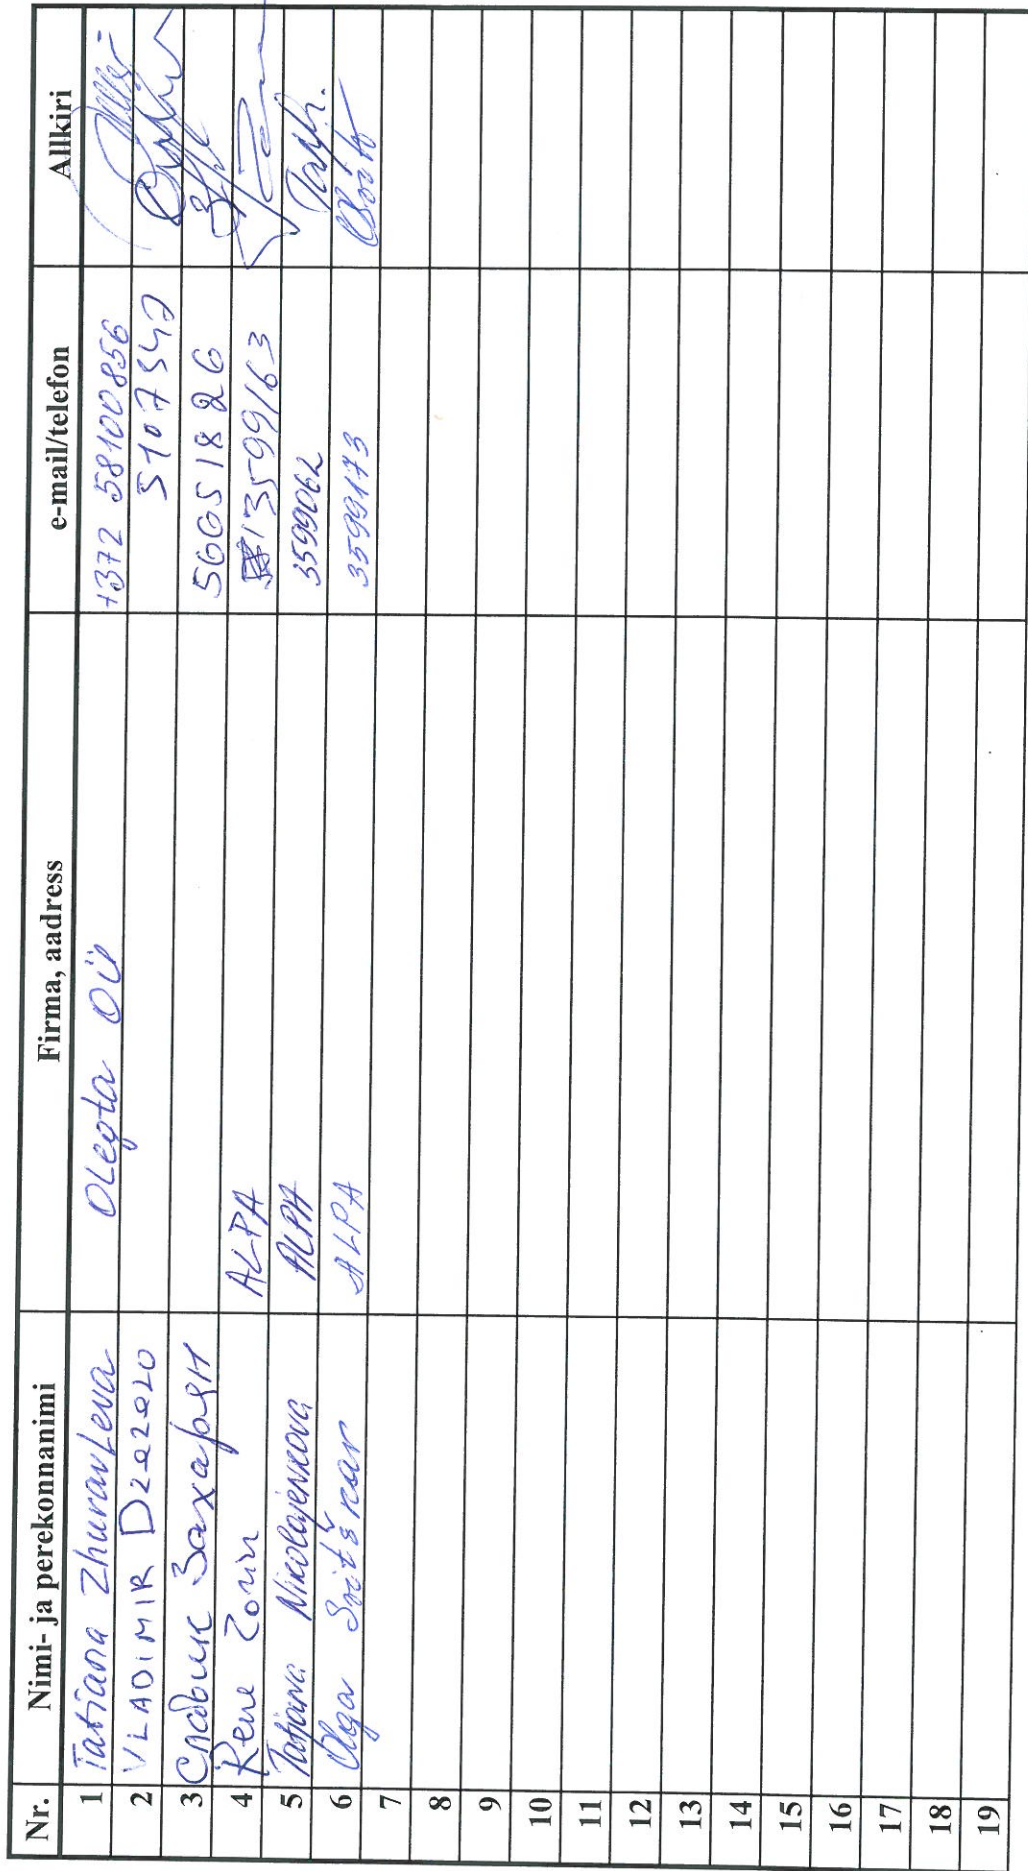 Nr. Nimi- ja perekonnanimi Firma, aadress e-mail/telefon Allkiri
1 Tatiana Zhuravleva Olegta OÜ +372 58100856
2 VLADIMIR 5107547
3 Славик Захарян 56651826
4 Rene Zorin ALPA 13599163
5 Tatjana Nikolajenkova ALPA 3599062
6 Olga ALPA 3599173
7
8
9
10
11
12
13
14
15
16
17
18
19